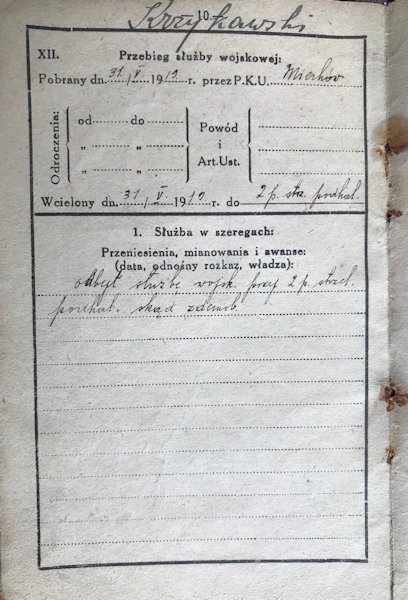 10
Krzykawski
XII. Przebieg służby wojskowej:
Pobrany dn. 31/V 1919 r. przez P.K.U. Miechów
Odroczenia:
od ........ do ........
„ ........ „ ........
„ ........ „ ........
Powód
i
Art.Ust.
Wcielony dn. 31/V 1919 r. do 2 p. strz. podhal.
1. Służba w szeregach:
Przeniesienia, mianowania i awanse:
(data, odnośny rozkaz, władza):
odbył służbę wojsk. przy 2 p. strzel.
podhal. skąd zdemob.